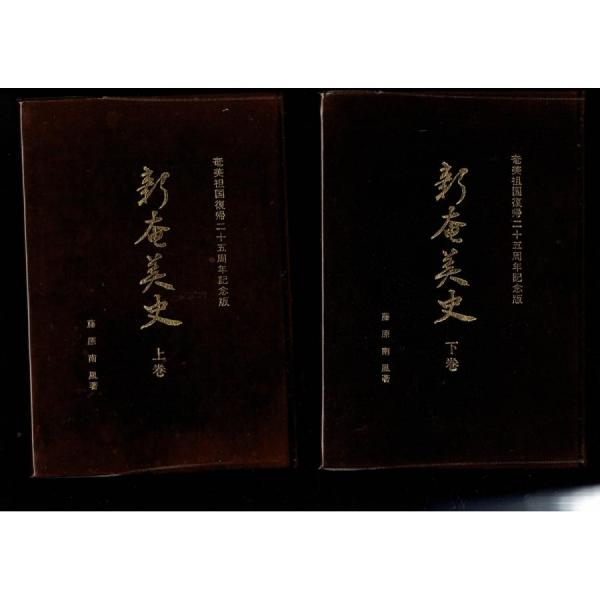 奄美祖国復帰二十五周年記念版
新奄美史
上巻
藤原南風著
奄美祖国復帰二十五周年記念版
新奄美史
下巻
藤原南風著